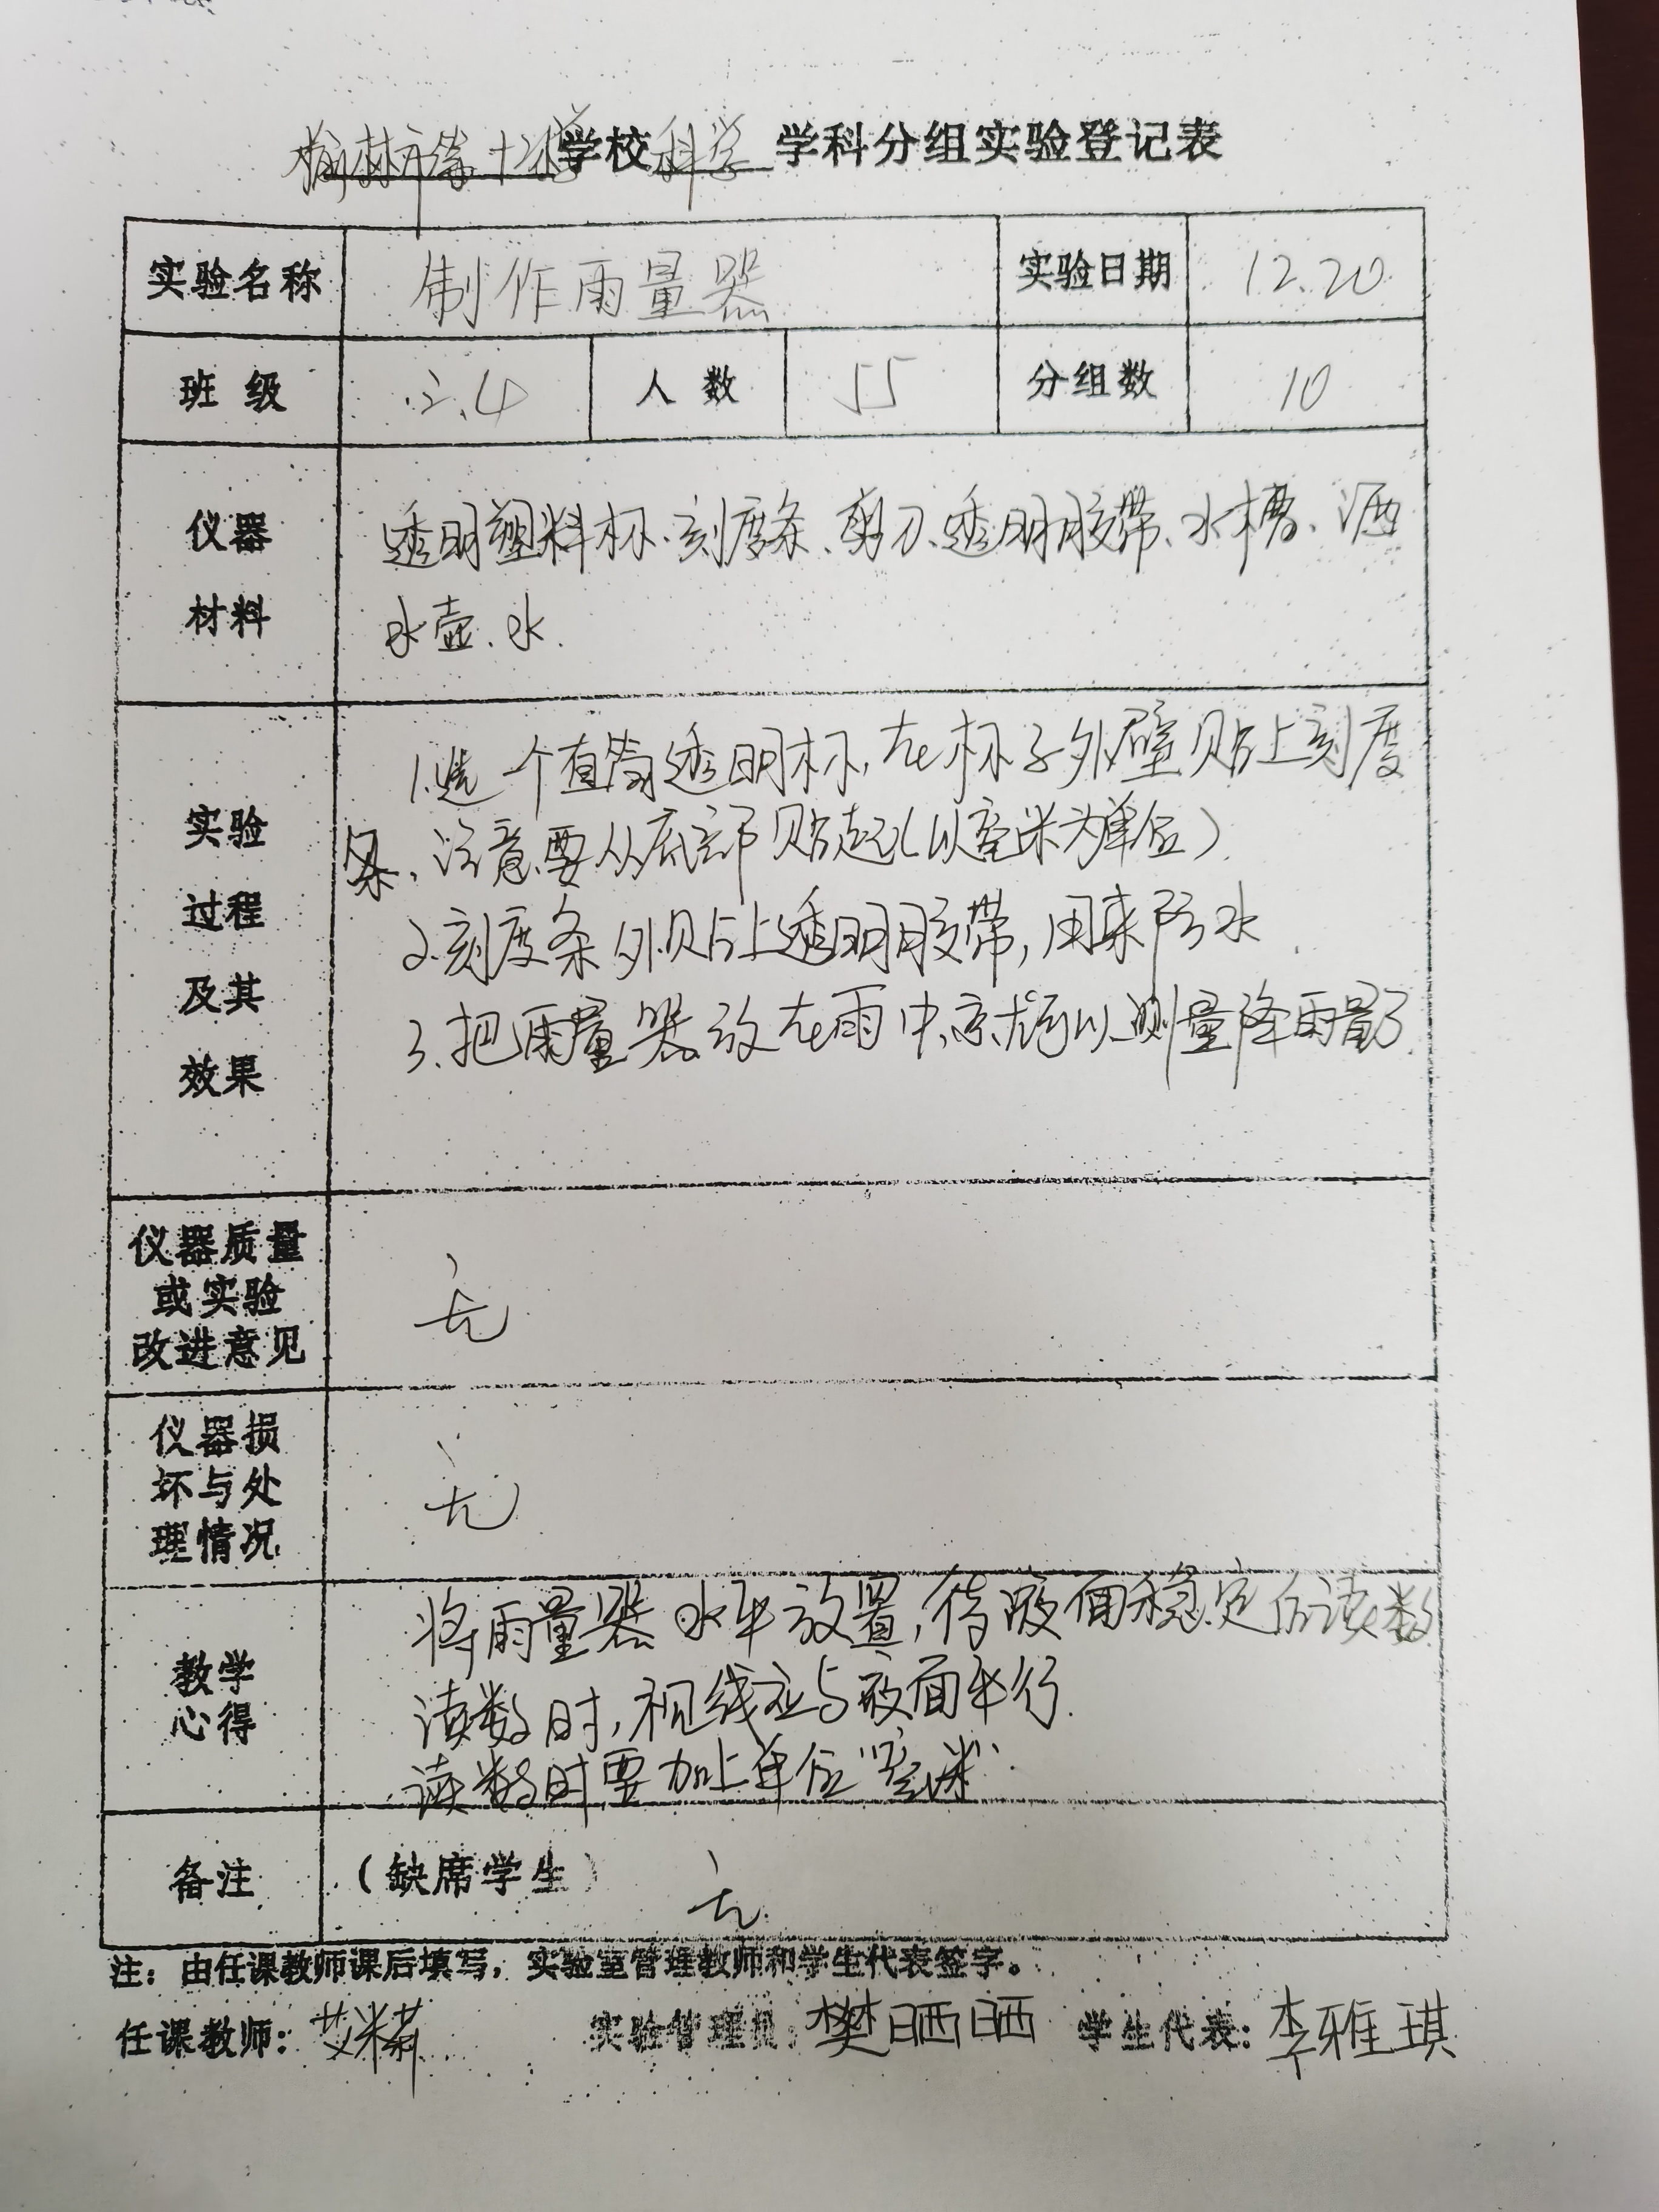 榆林市第十小学校 科学 学科分组实验登记表
实验名称 制作雨量器 实验日期 12.20
班级 2.4 人数 55 分组数 10
仪器材料 透明塑料杯、刻度条、剪刀、透明胶带、水槽、洒
水壶、水.
实验过程及其效果 1.选一个直筒透明杯,在杯子外壁贴上刻度
条,注意要从底部贴起(以毫米为单位)
2.刻度条外贴上透明胶带,用来防水
3.把雨量器放在雨中,就可以测量降雨量了
仪器质量或实验改进意见 无
仪器损坏与处理情况 无
教学心得 将雨量器水平放置,待液面稳定后读数
读数时,视线应与液面平行.
读数时要加上单位"毫米".
备注 (缺席学生) 无
注:由任课教师课后填写,实验室管理教师和学生代表签字。
任课教师: 实验管理员:樊晒晒 学生代表:李雅琪